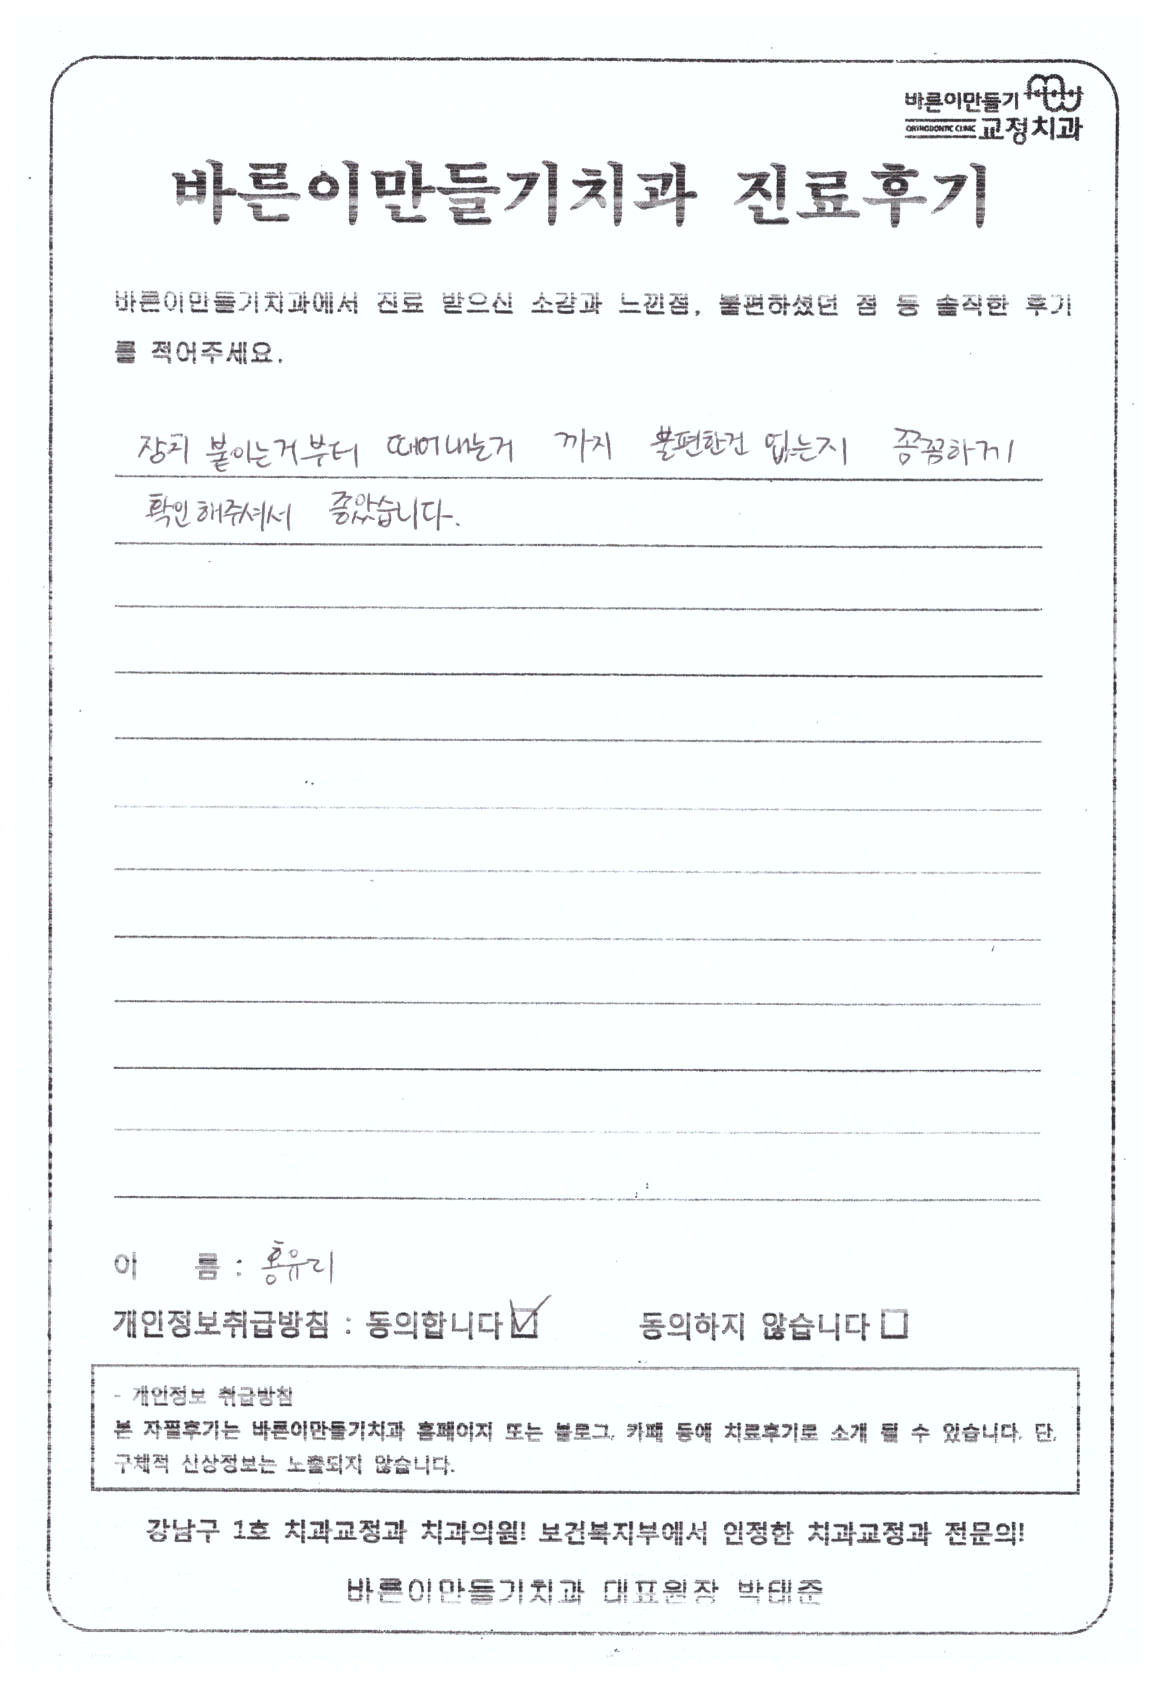 바른이만들기
ORTHODONTIC CLINIC 교정치과
바른이만들기치과 진료후기
바른이만들기치과에서 진료 받으신 소감과 느낀점, 불편하셨던 점 등 솔직한 후기
를 적어주세요.
장치 붙이는거부터 떼어내는거 까지 불편한건 없는지 꼼꼼하게
확인해주셔서 좋았습니다.
이 름 : 홍유리
개인정보취급방침 : 동의합니다☑ 동의하지 않습니다□
- 개인정보 취급방침
본 자필후기는 바른이만들기치과 홈페이지 또는 블로그, 카페 등에 치료후기로 소개 될 수 있습니다. 단,
구체적 신상정보는 노출되지 않습니다.
강남구 1호 치과교정과 치과의원! 보건복지부에서 인정한 치과교정과 전문의!
바른이만들기치과 대표원장 박태준